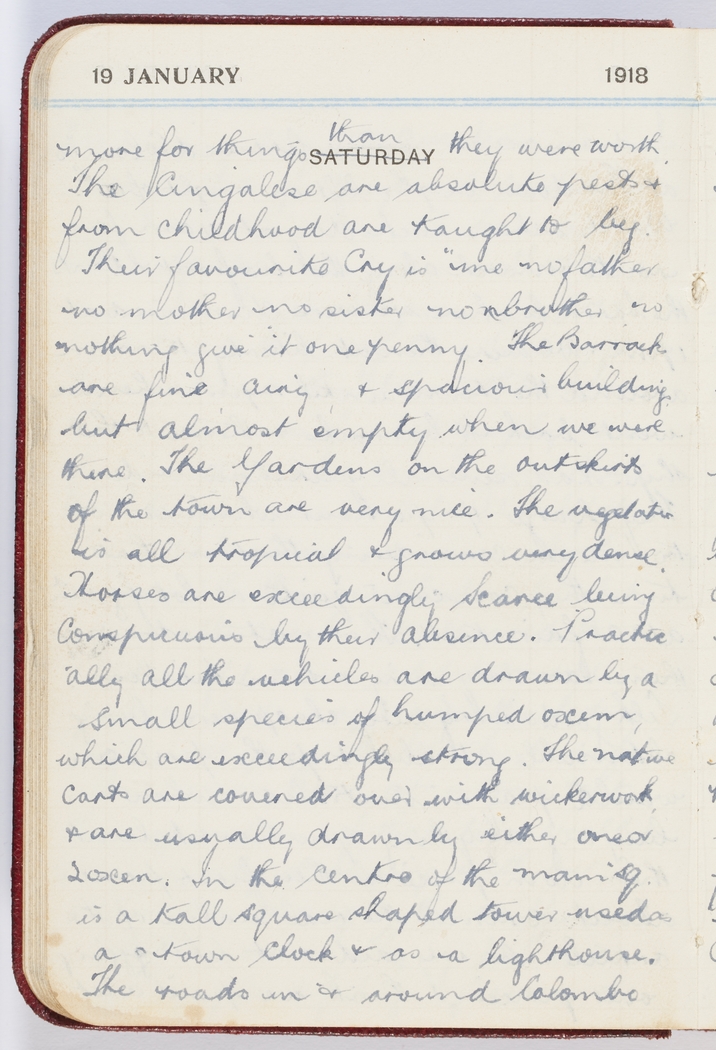 19 JANUARY 1918
SATURDAY
more for things than they were worth.
The Cingalese are absolute pests &
from childhood are taught to beg.
Their favourite Cry is "me no father
no mother no sister no brother no
nothing give it one penny. The Barracks
are fine airy & spacious building
but almost empty when we were
there. The Gardens on the outskirts
of the town are very nice. The vegetatio
is all tropical & grows very dense.
Horses are exceedingly Scarce being
Conspicuous by their absence. Practic
ally all the vehicles are drawn by a
small species of humped oxem,
which are exceedingly strong. The native
Carts are covered over with wickerwork
& are usually drawn by either one or
2 oxen. In the Centre of the main sq.
is a tall square shaped tower used as
a town Clock & as a lighthouse.
The roads in & around Colombo